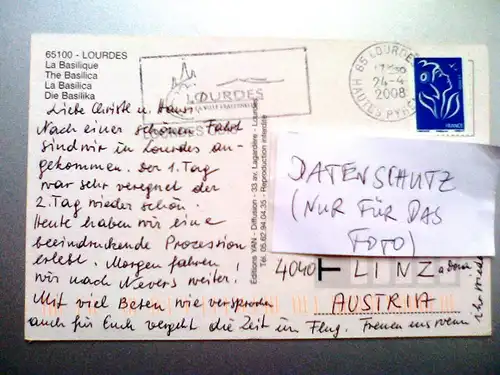 65100 - LOURDES
La Basilique
The Basilica
La Basilica
Die Basilika
LOURDES
65 LOURDES
24-4
2008
HAUTES PYR
FRANCE
Liebe Christl u. Hans!
Nach einer schönen Fahrt
sind wir in Lourdes an-
gekommen. Der 1. Tag
war sehr verregnet der
2. Tag wieder schön.
Heute haben wir eine
beeindruckende Prozession
erlebt. Morgen fahren
wir nach Nevers weiter!
Mit viel Beten, wie versprochen
auch für Euch vergeht die Zeit im Flug. Freuen uns wenn
ihr wieder
Editions YAN - Diffusion - 33 av. Lagardère - Lourdes
Tél. 05.62.94.04.35 - Reproduction interdite
DATENSCHUTZ
(NUR FÜR DAS
FOTO)
4040 LINZ a. Donau
AUSTRIA